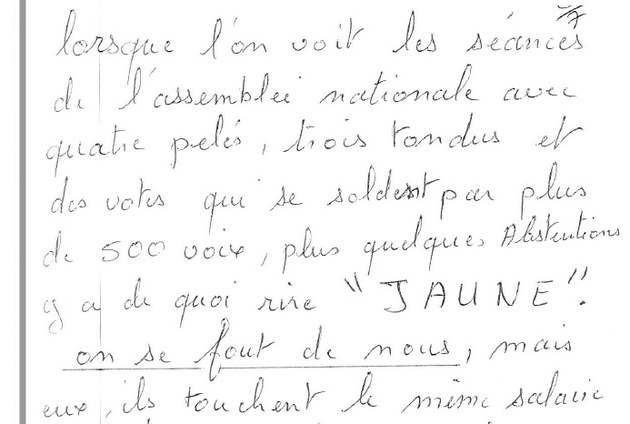 lorsque l'on voit les séances
de l'assemblée nationale avec
quatre pelés, trois tondus et
des votes qui se soldent par plus
de 500 voix, plus quelques Abstentions
y a de quoi rire "JAUNE".
on se fout de nous, mais
eux, ils touchent le même salaire